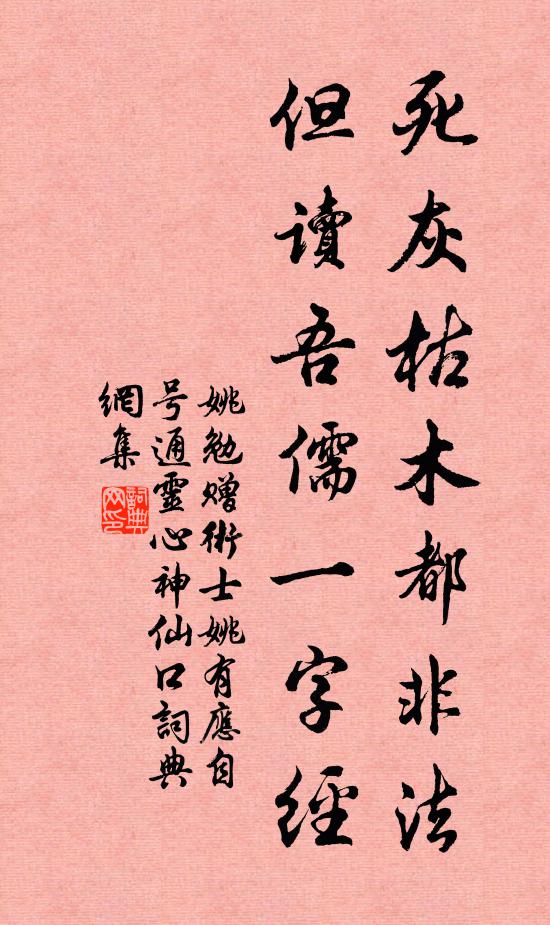 死灰枯木都非法
但讀吾儒一字經
姚勉贈術士姚有應自
号通靈心神仙口詞典
網集
詞典
网印